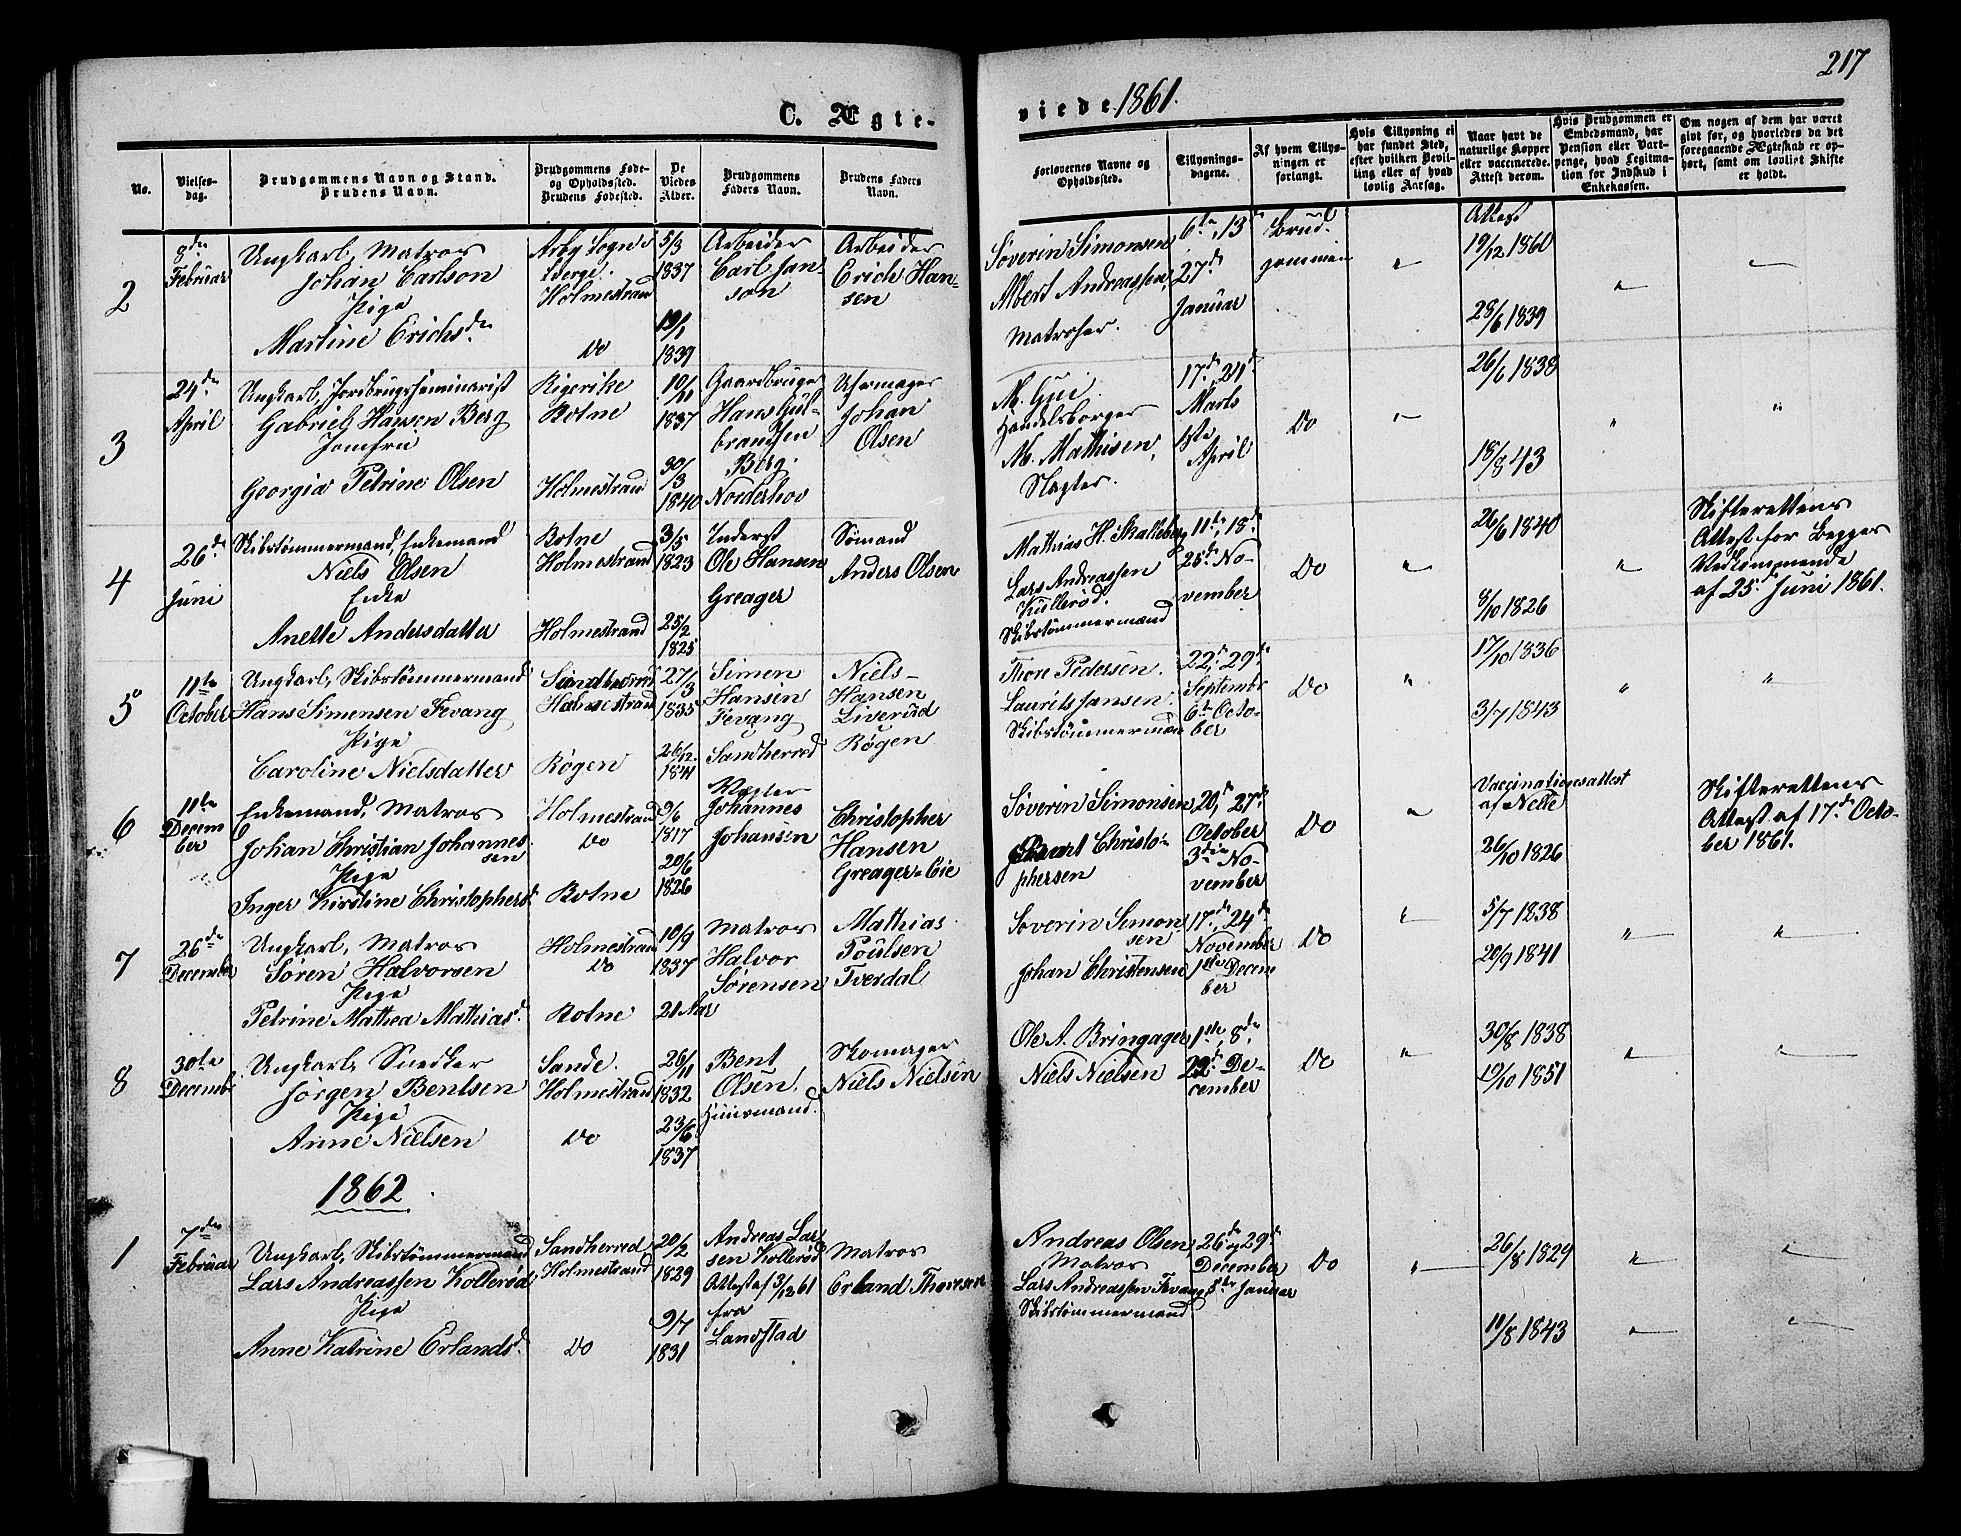 217
C. Ægte-
viede 1861.
No.
Vielses-
dag.
Brudgommens Navn og Stand.
Brudens Navn.
Brudgommens Føde-
og Opholdssted.
Brudens Fødested.
De
Viedes
Alder.
Brudgommens
Faders Navn.
Brudens Faders
Navn.
Forlovernes Navne og
Opholdssted.
Tillysnings-
dagene.
Af hvem Tillys-
ningen er
forlangt.
Hvis Tillysning ei
har fundet Sted,
efter hvilken Bevil-
ling eller af hvad
lovlig Aarsag.
Naar havt de
naturlige Kopper
eller vaccinerede.
Attest derom.
Hvis Brudgommen er
Embedsmand, har
Pension eller Vart-
penge, hvad Legitima-
tion for Indskud i
Enkekassen.
Om nogen af dem har været
gift før, og hvorledes da det
foregaaende Ægteskab er op-
hørt, samt om lovligt Skifte
er holdt.
2
8de
Februar
Ungkarl, Matros
Johan Carlson
Pige
Martine Erichsd.
Arby Sogn
Holmestrand
Do
5/3
1837
19/1
1839
Arbeider
Carl Jan-
son
Arbeider
Erich Han-
sen
Søverin Simonsen
Albert Andreassen,
Matroser.
6te, 13de
27de
Januar
Brud-
gommen
"
Attest
19/12 1860
28/6 1839
"
"
3
24de
April
Ungkarl, Jordbrugsseminarist
Gabriel Hansen Berg
Jomfru
Georgia Petrine Olsen
Rigerike
Botne
Holmestrand
10/11
1837
30/3
1840
Gaardbruger
Hans Gul-
brandsen
Berg.
Norderhov
Uhrmager
Johan
Olsen
M. Gjei
Handelsborger
M. Mathisen,
Slagter.
17de, 24de
Marts
1ste
April
Do
"
26/6 1838
18/8 43
"
"
4
26de
Juni
Skibstømmermand, Enkemand
Niels Olsen
Enke
Anette Andersdatter
Botne
Holmestrand
Holmestrand
3/5
1823
25/2
1825
Inderst
Ole Hansen
Greager
Sømand
Anders Olsen
Mathias H. Skalleberg
Lars Andreassen
Kullerød.
Skibstømmermænd
11te, 18de
25de No-
vember
Do
"
26/6 1840
8/10 1826
"
Skifterettens
Attest for Begges
Vedkommende
af 25de Juni 1861.
5
11te
October
Ungkarl, Skibstømmermand
Hans Simensen Fevang
Pige
Caroline Nielsdatter
Sandherred
Holmestrand
Røgen
27/3
1835
26/12
1841
Simen
Hansen
Fevang
Sandherred
Niels
Hansen
Liverud
Røgen
Thore Pedersen.
Laurits Jansen.
Skibstømmermænd
22de, 29de
September
6te Octo-
ber
Do
"
17/10 1836
3/7 1843
"
"
6
11te
Decem
ber
Enkemand, Matros
Johan Christian Johannes-
sen
Pige
Inger Kirstine Christophersd.
Holmestrand
Do
Botne
9/6
1817
20/6
1826
Johannes
Johansen
Christopher
Hansen
Greager-Eie
Søverin Simonsen
Christo-
phersen
20de, 27de
October
3die No-
vember
Do
"
Vaccinationsattest
26/10 1826
Skifterettens
Attest af 17de Octo-
ber 1861.
7
26de
December
Ungkarl, Matros
Søren Halvorsen
Pige
Petrine Mathea Mathiasd.
Holmestrand
Do
Botne
10/9
1837
21 Aar
Matros
Halvor
Sørensen
Mathias
Poulsen
Tverdal
Søverin Simon
sen
Johan Christensen
17de, 24de
November
1ste Decem
ber
Do
"
5/7 1838
20/9 1841
"
"
8
30te
Decembr
Ungkarl, Snedker
Jørgen Bentsen
Pige
Anne Nielsen
Sande.
Holmestrand
Do
26/11
1832
23/6
1837
Bent
Olsen.
Huusmand.
Skomager
Niels Nielsen
Ole A. Bringager
Niels Nielsen
1ste, 8de
22de De-
cember
Do
"
30/8 1838
19/10 1851
"
"
1862
1
7de
Februar
Ungkarl, Skibstømmermand
Lars Andreassen Kollerød
Pige
Anne Katrine Erlandsd.
Sandherred,
Holmestrand
Do
20/2
1829
9/7
1831
Andreas Lar
sen Kollerød
Attest af 3/12 61
fra
Landstad
Matros
Erland Thoresen
Andreas Olsen,
Matros
Lars Andreassen Fevang
Skibstømmermand
26de og 29de
December
5te Januar
Do
"
26/8 1829
11/8 1843
"
"
"
"